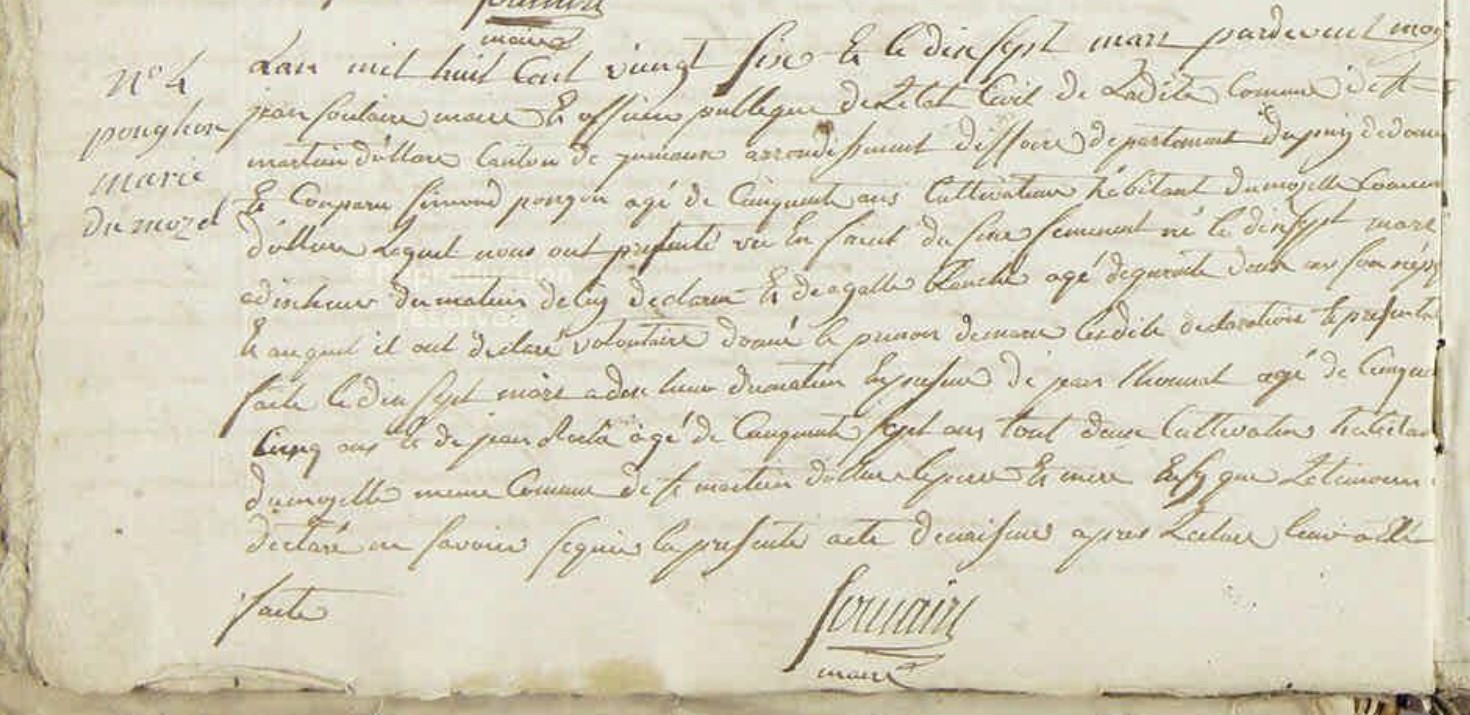 maire
N° 4
ponghon
marie
du mozel
Lan mil huit Cent viengt six Et le dix sept mars pardevent moy
jean soulaire maire Et officier publique de Letat Civil de Ladite Commune de st
martin dollare Canton de jumeaux arrondissement dissoire departement du puy de dome
Et Comparu simond pongon agé de Cinquente ans Cultivateur habitant du mozelle
dollare Lequel nous out presenté du sexe femenent né le dix sept mars
du matin de luy declarant Et de agatte Blanche agé de quarente deux ans
Et auquel il out declaré voloutaire donné le prenon de marie lesdite declarations Et presenta
faite le dix sept mars a dix heure du matien En presence de jean agé de Cinquen
Cinq ans Et de jean agé de Cinquente sept ans tout deux Cultivateurs habitan
du mozelle meme Comune de st martien dollare le pere Et mere Ensy que Letemoien
declaré ne savoir la presente acte denaisence apres Lecture leur a Eté
faite
maire
*Reproduction
réservée